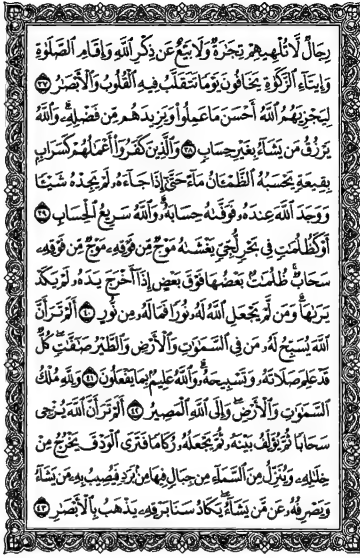 رِجَالٌ لَّا تُلْهِيهِمْ تِجَٰرَةٌ وَلَا بَيْعٌ عَن ذِكْرِ ٱللَّهِ وَإِقَامِ ٱلصَّلَوٰةِ
وَإِيتَآءِ ٱلزَّكَوٰةِ يَخَافُونَ يَوْمًا تَتَقَلَّبُ فِيهِ ٱلْقُلُوبُ وَٱلْأَبْصَٰرُ ٣٧
لِيَجْزِيَهُمُ ٱللَّهُ أَحْسَنَ مَا عَمِلُوا۟ وَيَزِيدَهُم مِّن فَضْلِهِۦ وَٱللَّهُ
يَرْزُقُ مَن يَشَآءُ بِغَيْرِ حِسَابٍ ٣٨ وَٱلَّذِينَ كَفَرُوٓا۟ أَعْمَٰلُهُمْ كَسَرَابٍۭ
بِقِيعَةٍ يَحْسَبُهُ ٱلظَّمْـَٔانُ مَآءً حَتَّىٰٓ إِذَا جَآءَهُۥ لَمْ يَجِدْهُ شَيْـًٔا
وَوَجَدَ ٱللَّهَ عِندَهُۥ فَوَفَّىٰهُ حِسَابَهُۥ وَٱللَّهُ سَرِيعُ ٱلْحِسَابِ ٣٩
أَوْ كَظُلُمَٰتٍ فِى بَحْرٍ لُّجِّىٍّ يَغْشَىٰهُ مَوْجٌ مِّن فَوْقِهِۦ مَوْجٌ مِّن فَوْقِهِۦ
سَحَابٌ ظُلُمَٰتٌۢ بَعْضُهَا فَوْقَ بَعْضٍ إِذَآ أَخْرَجَ يَدَهُۥ لَمْ يَكَدْ
يَرَىٰهَا وَمَن لَّمْ يَجْعَلِ ٱللَّهُ لَهُۥ نُورًا فَمَا لَهُۥ مِن نُّورٍ ٤٠ أَلَمْ تَرَ أَنَّ
ٱللَّهَ يُسَبِّحُ لَهُۥ مَن فِى ٱلسَّمَٰوَٰتِ وَٱلْأَرْضِ وَٱلطَّيْرُ صَٰٓفَّٰتٍ كُلٌّ
قَدْ عَلِمَ صَلَاتَهُۥ وَتَسْبِيحَهُۥ وَٱللَّهُ عَلِيمٌۢ بِمَا يَفْعَلُونَ ٤١ وَلِلَّهِ مُلْكُ
ٱلسَّمَٰوَٰتِ وَٱلْأَرْضِ وَإِلَى ٱللَّهِ ٱلْمَصِيرُ ٤٢ أَلَمْ تَرَ أَنَّ ٱللَّهَ يُزْجِى
سَحَابًا ثُمَّ يُؤَلِّفُ بَيْنَهُۥ ثُمَّ يَجْعَلُهُۥ رُكَامًا فَتَرَى ٱلْوَدْقَ يَخْرُجُ مِنْ
خِلَٰلِهِۦ وَيُنَزِّلُ مِنَ ٱلسَّمَآءِ مِن جِبَالٍ فِيهَا مِنۢ بَرَدٍ فَيُصِيبُ بِهِۦ مَن يَشَآءُ
وَيَصْرِفُهُۥ عَن مَّن يَشَآءُ يَكَادُ سَنَا بَرْقِهِۦ يَذْهَبُ بِٱلْأَبْصَٰرِ ٤٣